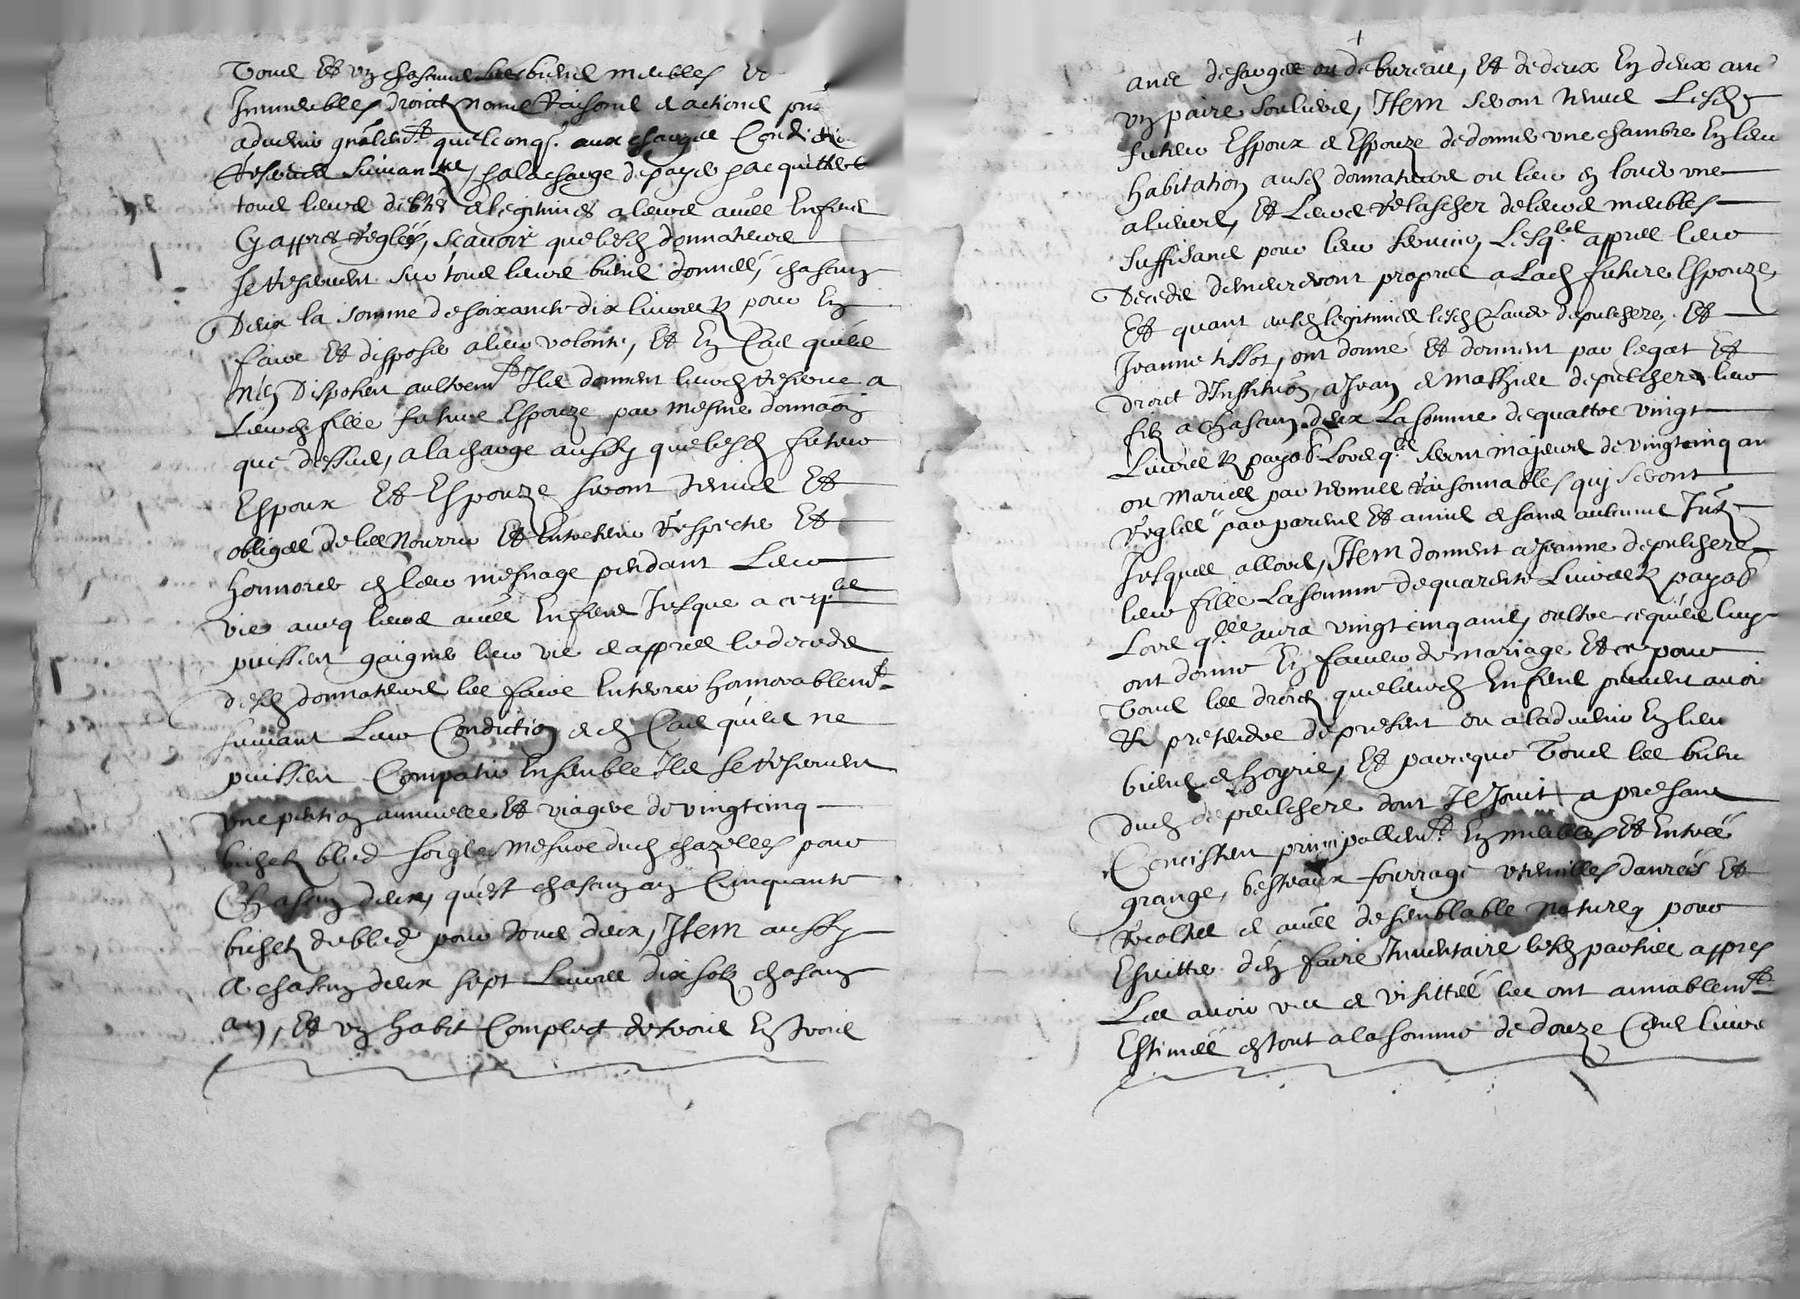 Tous Et un chascuns les biens meubles Et
Immeubles, droictz noms Raisons et actions pñs
advenir gñalem.t quelconqs. aux charges Conditions
Reserves suivantes, a la charge de payer et acquitter
tous leurs debtes et legitimes a leurs autres Enfens
Cy appres Reglés, scavoir que lesd donnateurs
se Reservent sur tous leurs biens donnés, chascung
Deux la somme de soixante dix livres tz pour En
faire Et disposer a leur volonté, Et En Cas quils
n'en Disposent aultrem.t Ils donnent leurd Reserve a
Leurd fille future Espouze par mesme donnaõn
que dessus, a la charge aussy que lesd futurs
Espoux Et Espouze seront tenus Et
obliges de les Nourrir Et Entretenir Respecter Et
honnorer en leur mesnage pendant Leur
vie avecq leurs autres Enfens Jusque a ce q.lz
puissent gaigner leur vie et appres le deceds
desd donnateurs les faire Enterrer honnorablem.t
suivant Leur Condiction et en Cas quils ne
puissent Compatir Ensemble Ils se Reservent
une pention annuelle Et viagere de vingtcinq
bichetz bled soigle mesure dud chazelles pour
Chascung deux, quest chascung an Cinquante
bichetz de bled pour tous deux, Item aussy
a chascung deux sept Livres dix solz chascung
an, Et un habit Complect de trois En trois
ans de sarge ou de bureau, Et de deux En deux ans
un paire souliers, Item seront tenus Lesd
futurs Espoux et Espouze de donner une chambre En leur
habitation ausd donnateurs ou leur en louer une
ailleurs, Et Leurs Relascher de leurs meubles
suffisans pour leur service, Lesq.lz appres leur
Decedz demeureront propres a Lad future Espouze,
Et quant ausd legitimes lesd Claude depulchere, Et
Jeanne tissot, ont donné Et donnent par legat Et
droict d'Institũon, a Jean et Mathieu depulchere leur
filz a chascung deux La somme de quattre vingt
Livres tz payab. Lors q.lz seront majeurs de vingtcinq an
ou Maries par termes Raisonnables, quj seront
Regles par parens Et amis et sans aulcuns Intz
Jusques allors, Item donnent a Jeanne depulchere
leur fille La somme de quarente Livres tz payab
Lors q.lle aura vingtcinq ans, oultre ce quils luy
ont donné En faveur de mariage Et ce pour
Tous les droictz que leurd Enfens peuvent avoir
Et pretendre de present ou a ladvenir En leur
biens et hoyrie, Et parceque Tous les biens
dud depulchere dont Il Jouit a presant
Concistent principallem.t En meubles Et Entrées
grange, bestiaux fourrage Ustensilles danrees Et
Recoltes et autres de semblable nature, pour
Esvitter d'en faire Inventaire lesd parties appres
Les avoir veu et visittés les ont amiablem.t
Estimés en tout a la somme de douze Cens livres